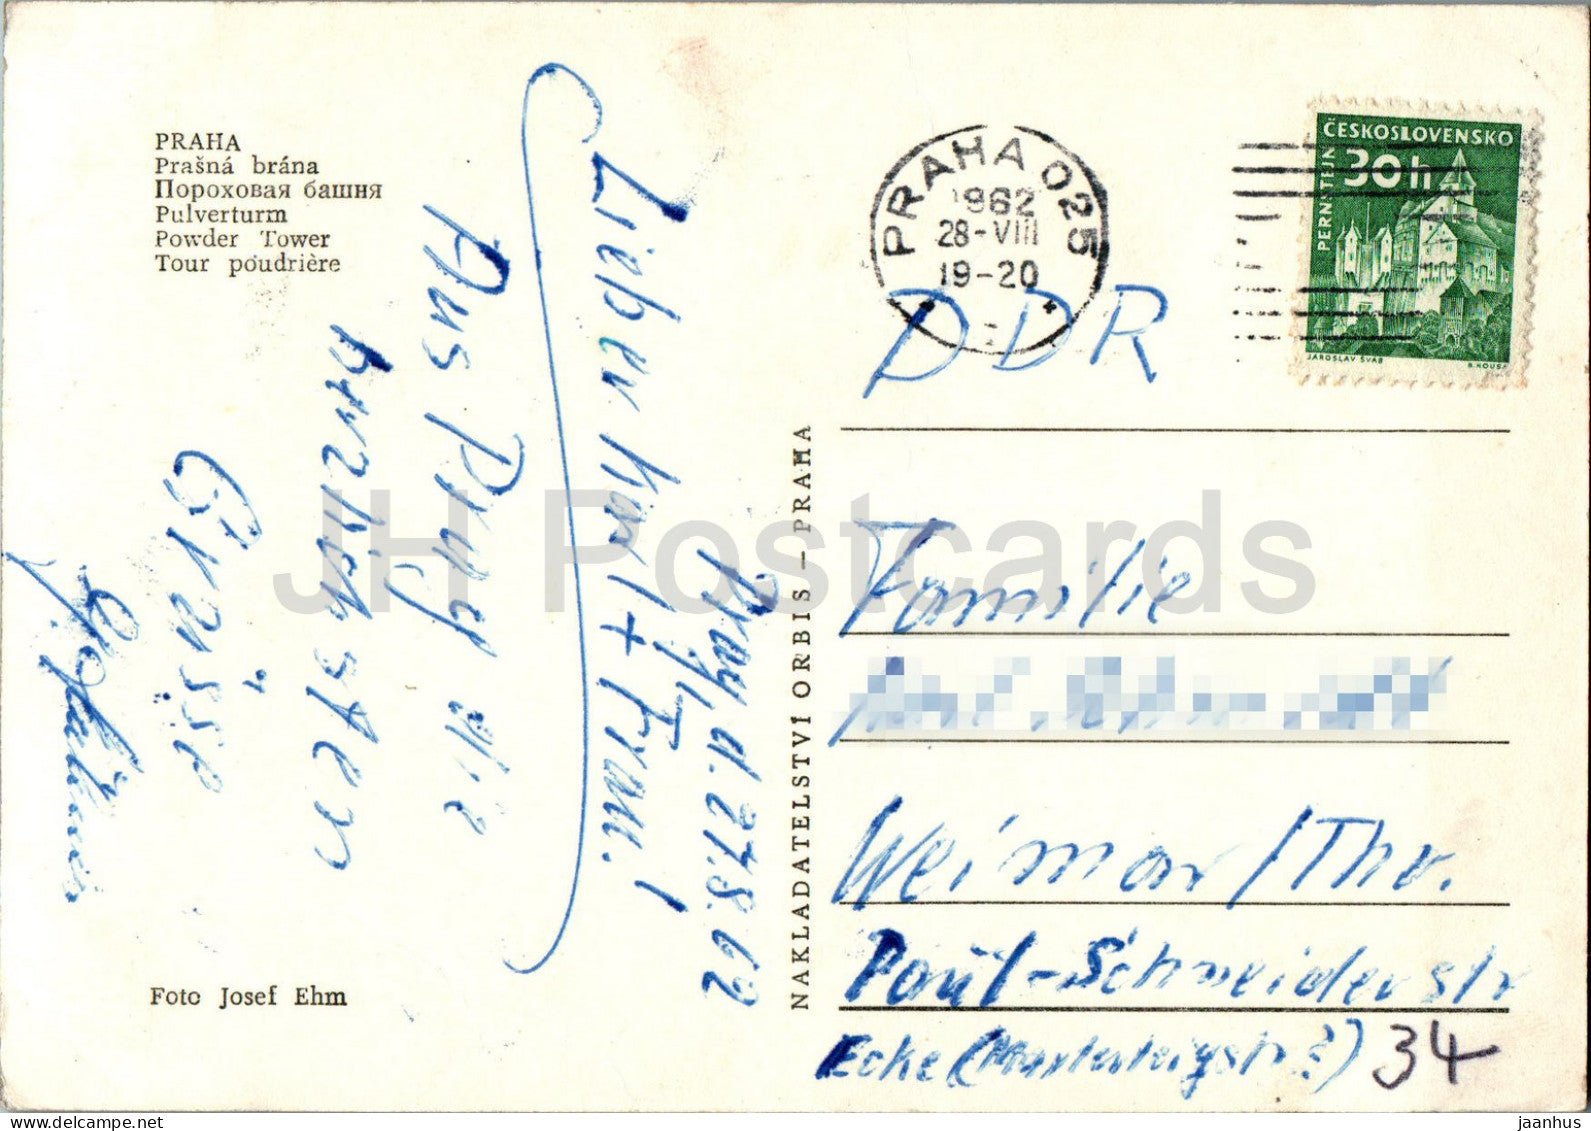 PRAHA
Prašná brána
Пороховая башня
Pulverturm
Powder Tower
Tour poudrière
Prag, d. 27.8.62
Lieber Karl + Frau!
Aus Prag die
herzlichsten
Grüsse
Foto Josef Ehm
NAKLADATELSTVÍ ORBIS — PRAHA
PRAHA 025
1962
28-VIII
19-20
ČESKOSLOVENSKO
30h
PERNŠTEJN
JAROSLAV ŠVÁB
DDR
Familie
Weimar/Thür.
Paul-Schneiderstr
Ecke (
34
JH Postcards
jaanhus